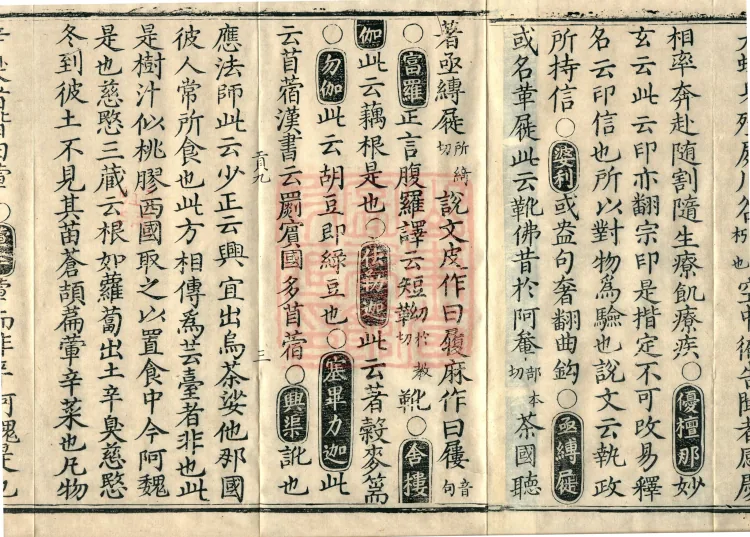 相率奔赴隨割隨生療飢療疾○優檀那妙
玄云此云印亦翻宗印是揩定不可改易釋
名云印信也所以對物為驗也說文云執政
所持信○婆利或盎句奢翻曲鈎○亟縛屣
或名革屣此云靴佛昔於阿奄部本切荼國聽
著亟縛屣所綺切說文皮作曰履麻作曰屨音句
○富羅正言腹羅譯云短靿於教切靴○舍樓
伽此云藕根是也○仕物迦此云著穀麥篅
○勿伽此云胡豆即綠豆也○塞畢力迦此
云苜蓿漢書云罽賓國多苜蓿○興渠訛也
貢九 三
應法師此云少正云興宜出烏荼娑他那國
彼人常所食也此方相傳爲芸臺者非也此
是樹汁似桃膠西國取之以置食中今阿魏
是也慈愍三藏云根如蘿蔔出土辛臭慈愍
冬到彼土不見其苗蒼頡篇葷辛菜也凡物